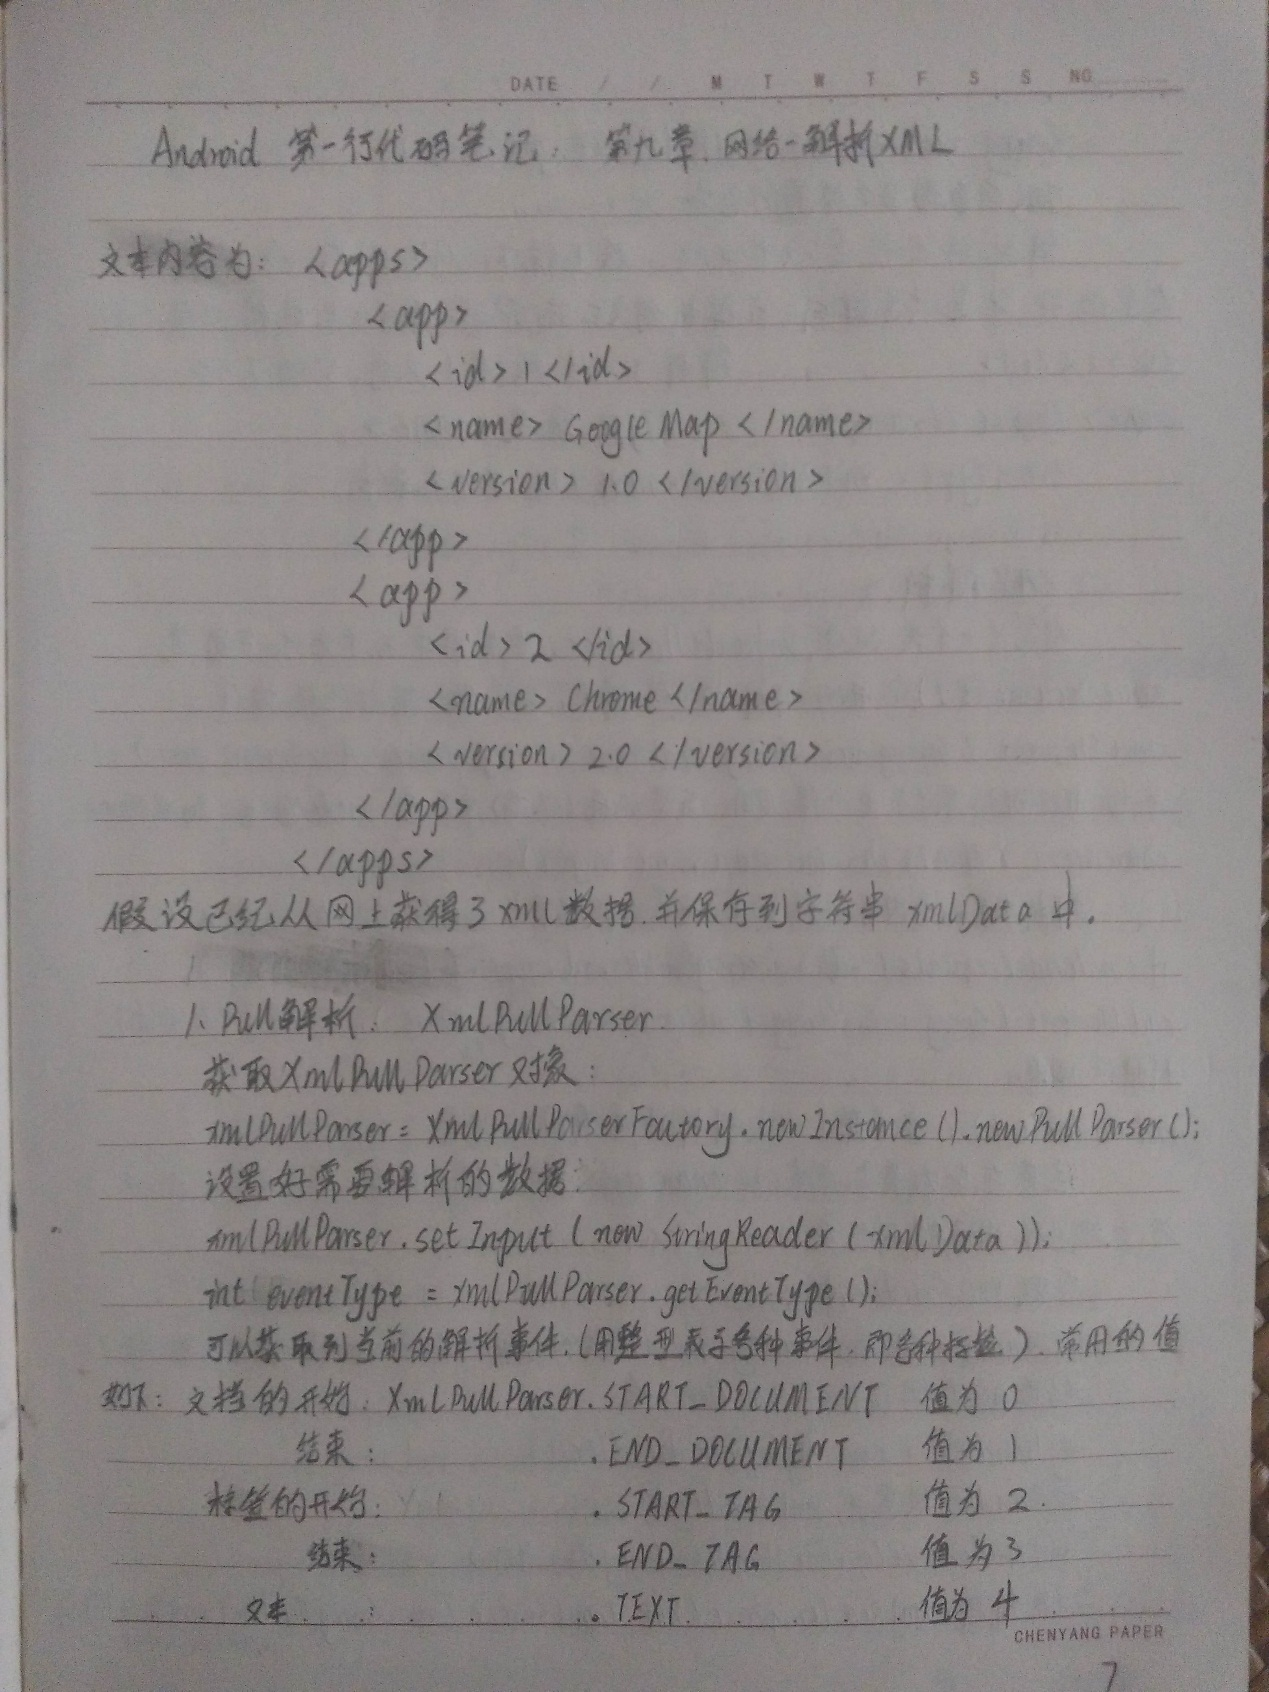 DATE / / M T W T F S S NO.
Android 第一行代码笔记: 第九章.网络-解析XML
文本内容为: <apps>
<app>
<id>1</id>
<name> Google Map </name>
<version> 1.0 </version>
</app>
<app>
<id>2 </id>
<name> Chrome </name>
<version> 2.0 </version>
</app>
</apps>
假设已经从网上获得了xml数据.并保存到字符串 xmlData 中.
1、Pull解析: XmlPullParser.
获取XmlPullParser对象:
xmlPullParser = XmlPullParserFactory.newInstance().newPullParser();
设置好需要解析的数据:
xmlPullParser.setInput(new StringReader(xmlData));
int eventType = xmlPullParser.getEventType();
可以获取到当前的解析事件.(用整型表示各种事件.即各种标签).常用的值
如下: 文档的开始: XmlPullParser.START_DOCUMENT 值为 0
结束: .END_DOCUMENT 值为 1
标签的开始: .START_TAG 值为 2.
结束: .END_TAG 值为 3
文本 : .TEXT. 值为 4
CHENYANG PAPER
7